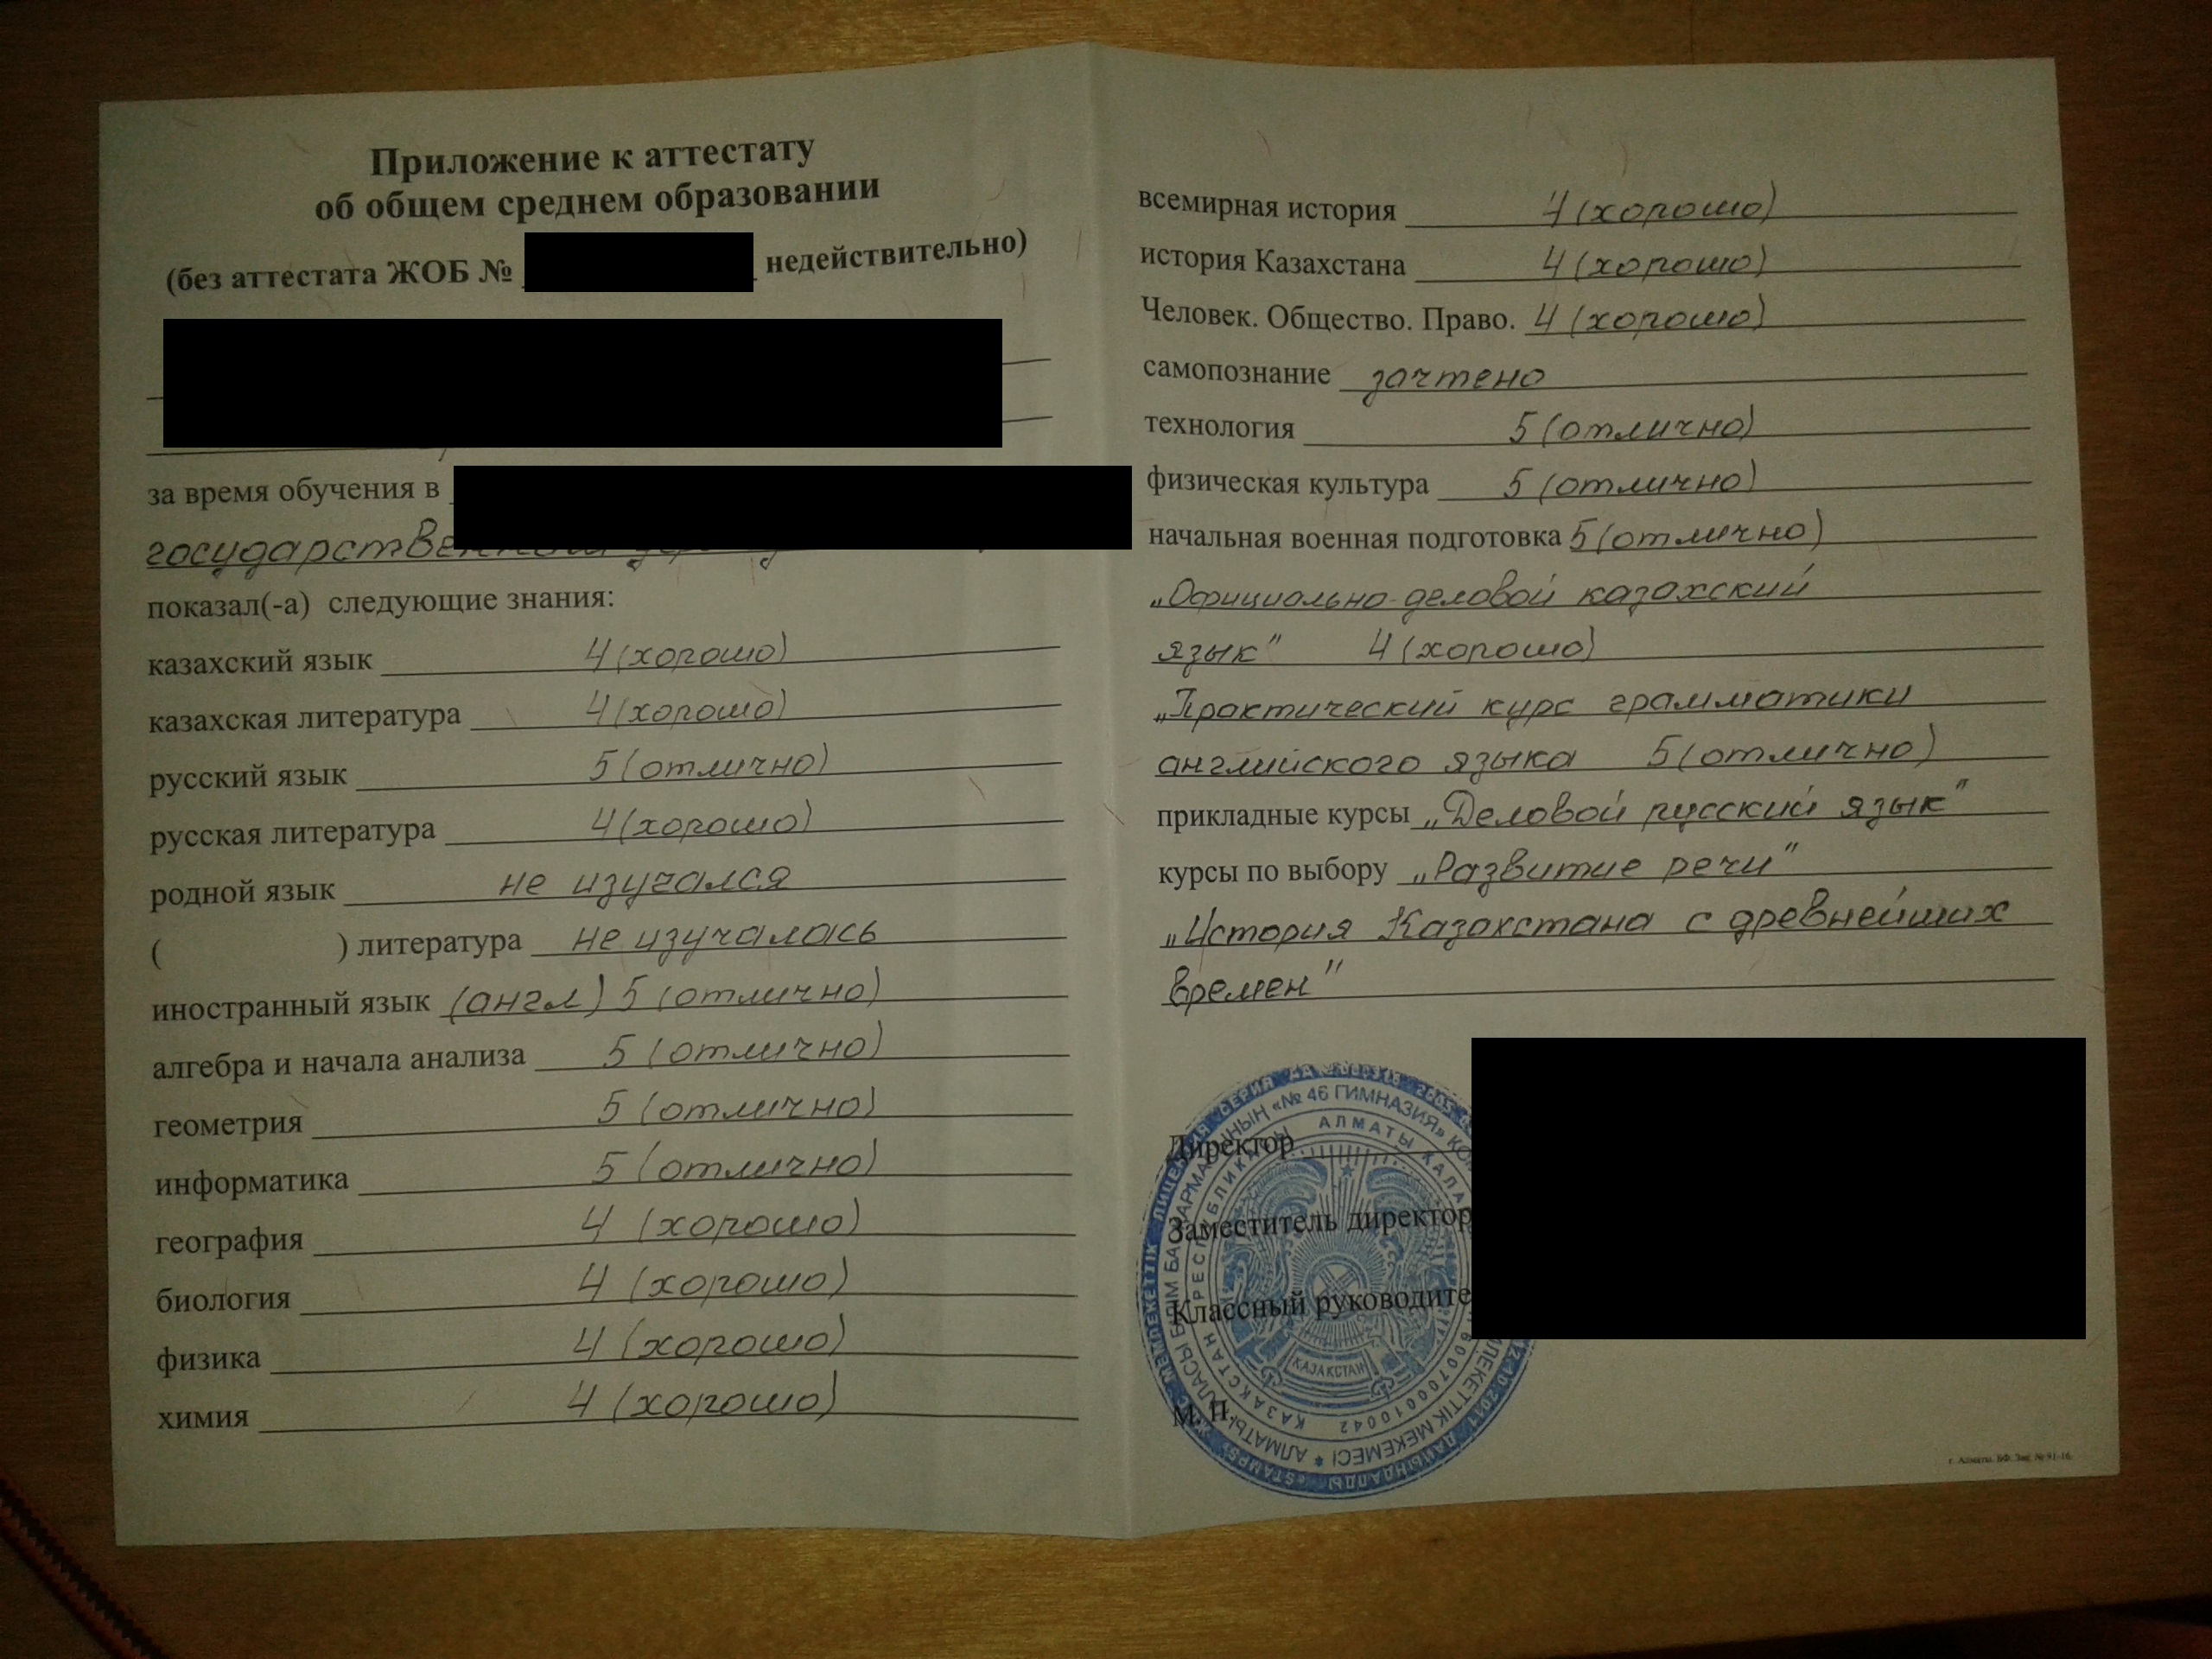 Приложение к аттестату
об общем среднем образовании
(без аттестата ЖОБ № недействительно)
за время обучения в
показал(-а) следующие знания:
казахский язык 4 (хорошо)
казахская литература 4 (хорошо)
русский язык 5 (отлично)
русская литература 4 (хорошо)
родной язык не изучался
( ) литература не изучалась
иностранный язык (англ) 5 (отлично)
алгебра и начала анализа 5 (отлично)
геометрия 5 (отлично)
информатика 5 (отлично)
география 4 (хорошо)
биология 4 (хорошо)
физика 4 (хорошо)
химия 4 (хорошо)
всемирная история 4 (хорошо)
история Казахстана 4 (хорошо)
Человек. Общество. Право. 4 (хорошо)
самопознание зачтено
технология 5 (отлично)
физическая культура 5 (отлично)
начальная военная подготовка 5 (отлично)
„Официально-деловой казахский
язык" 4 (хорошо)
„Практический курс грамматики
английского языка 5 (отлично)
прикладные курсы „Деловой русский язык"
курсы по выбору „Развитие речи"
„История Казахстана с древнейших
времен"
Директор
Заместитель
Классный
М. П.
«№ 46 ГИМНАЗИЯ»
АЛМАТЫ
ҚАЗАҚСТАН
г. Алматы. БФ. Зак. № 91-16.